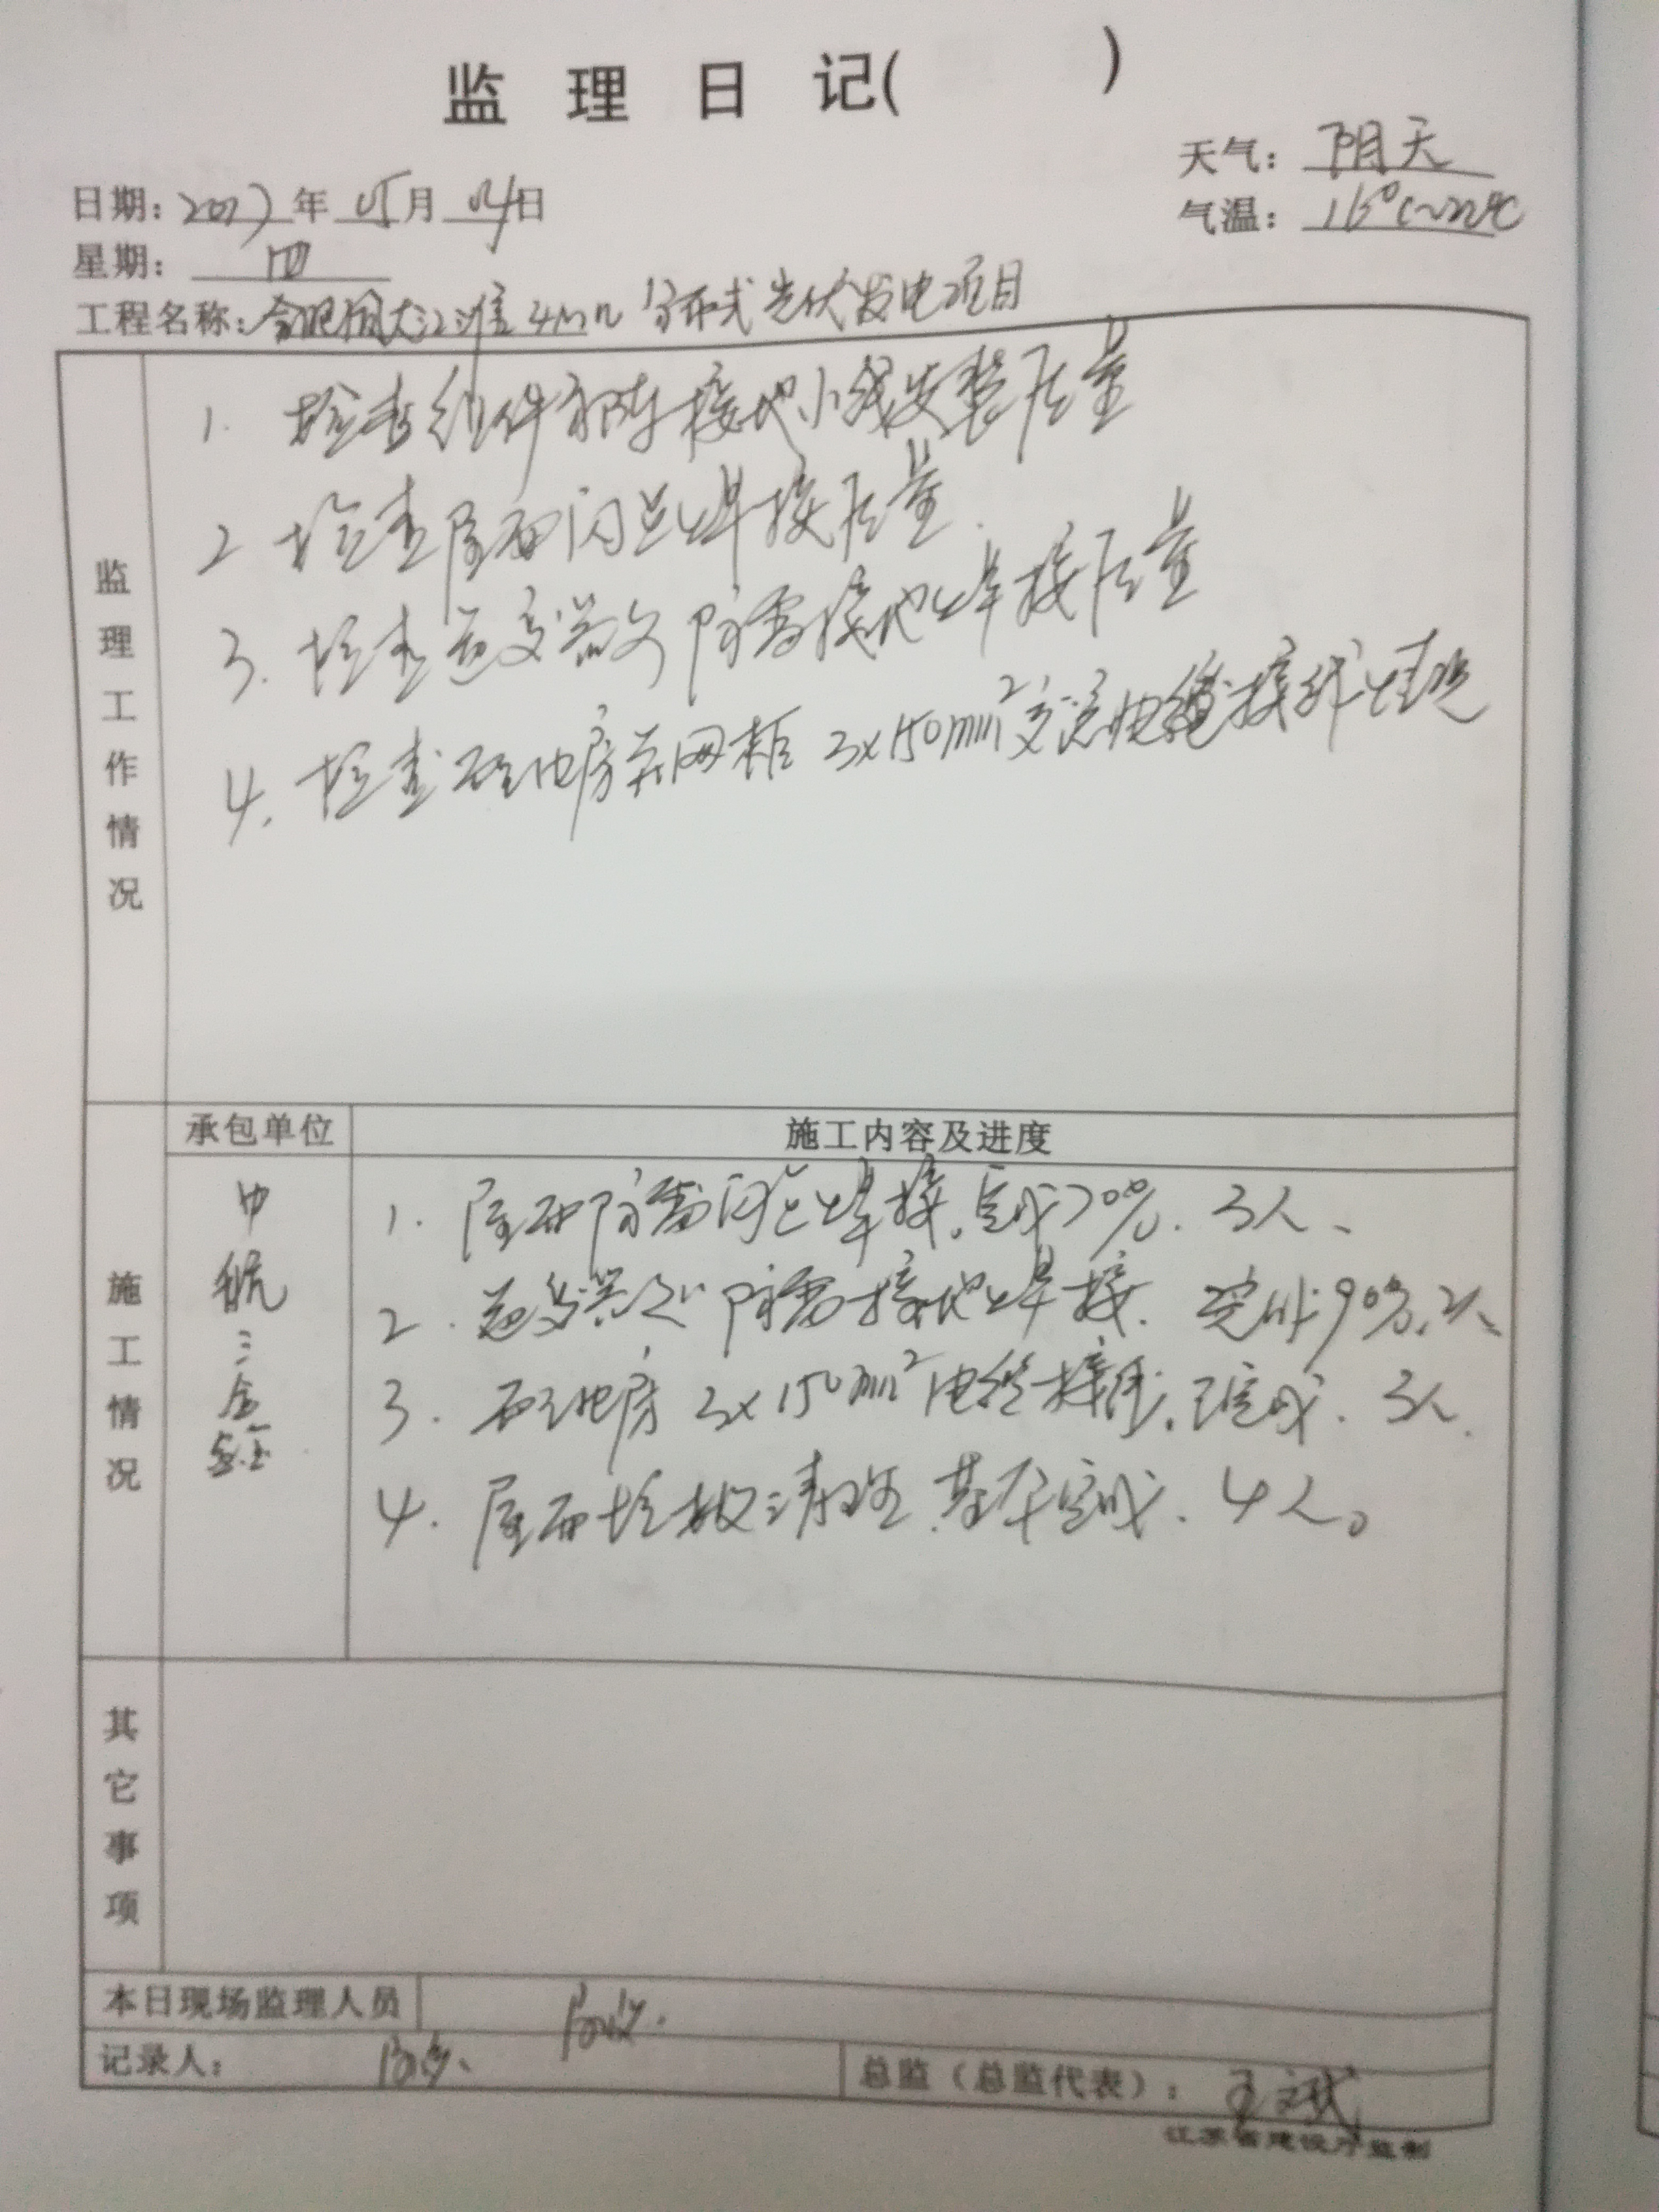 监理日记( )
天气：阴天
日期：2017年05月04日
气温：16°C~22°C
星期：四
工程名称：合肥 江淮4MW分布式光伏发电项目
监理工作情况
1. 检查组件方阵接地小线安装质量
2 检查屋面 焊接质量.
3. 检查逆变器 防雷接地焊接质量
4. 检查配电房并网柜 3x150mm²交流电缆接线情况
承包单位 施工内容及进度
施工情况
中航三鑫
1. 屋面防雷 焊接.完成70%. 3人、
2. 逆变器 防雷接地焊接. 完成90%.2人、
3. 配电房 3x150mm²电缆接线.已完成. 3人.
4. 屋面垃圾清理.基本完成. 4人。
其它事项
本日现场监理人员
记录人：
总监（总监代表）：王斌
江苏省建设厅监制